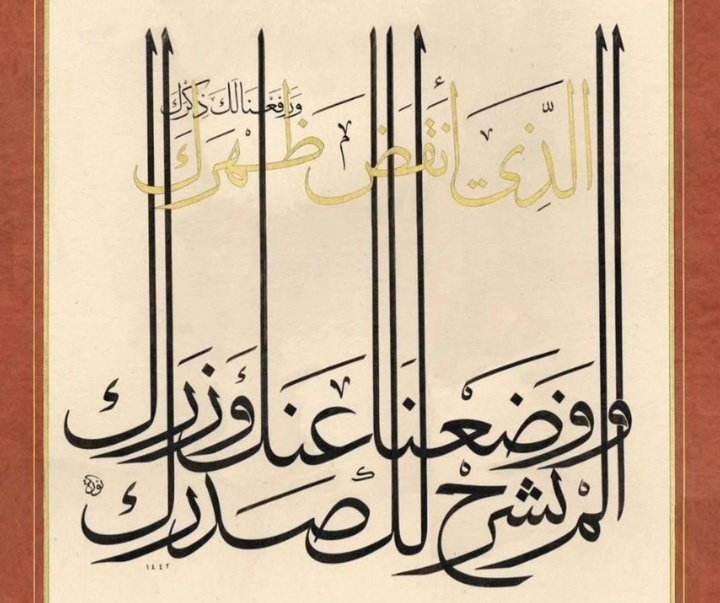 الم نشرح لك صدرك
ووضعنا عنك وزرك
الَّذي أنقَضَ ظهرك
وَرَفَعْنَا لَكَ ذِكْرَكَ
نورة
١٤٤٢